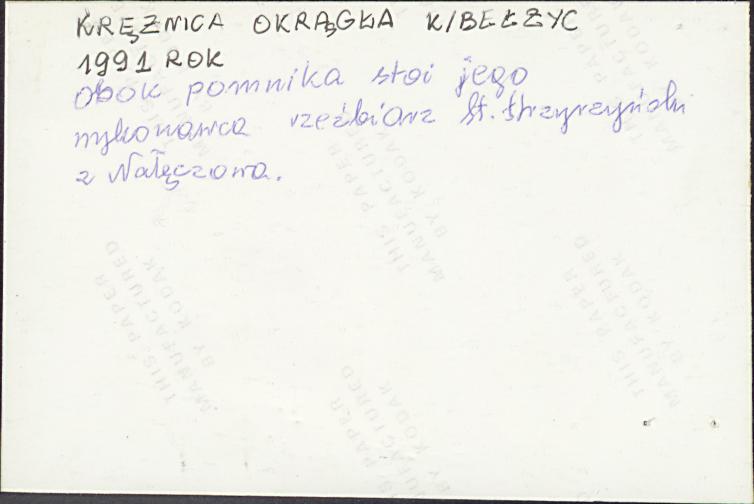 KRĘŻNICA OKRĄGŁA K/BEŁŻYC
1991 ROK
Obok pomnika stoi jego
wykonawca rzeźbiarz St. Strzyrzyński
z Nałęczowa.
THIS PAPER
MANUFACTURED
BY KODAK
THIS PAPER
MANUFACTURED
BY KODAK
THIS PAPER
MANUFACTURED
BY KODAK
THIS PAPER
MANUFACTURED
BY KODAK